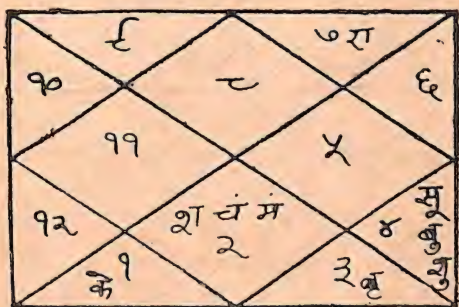 ९ ७ रा
१० ८ ६
११ ५
श चं मं
१२ २ ४ सू बु शु
के १ ३ बृ